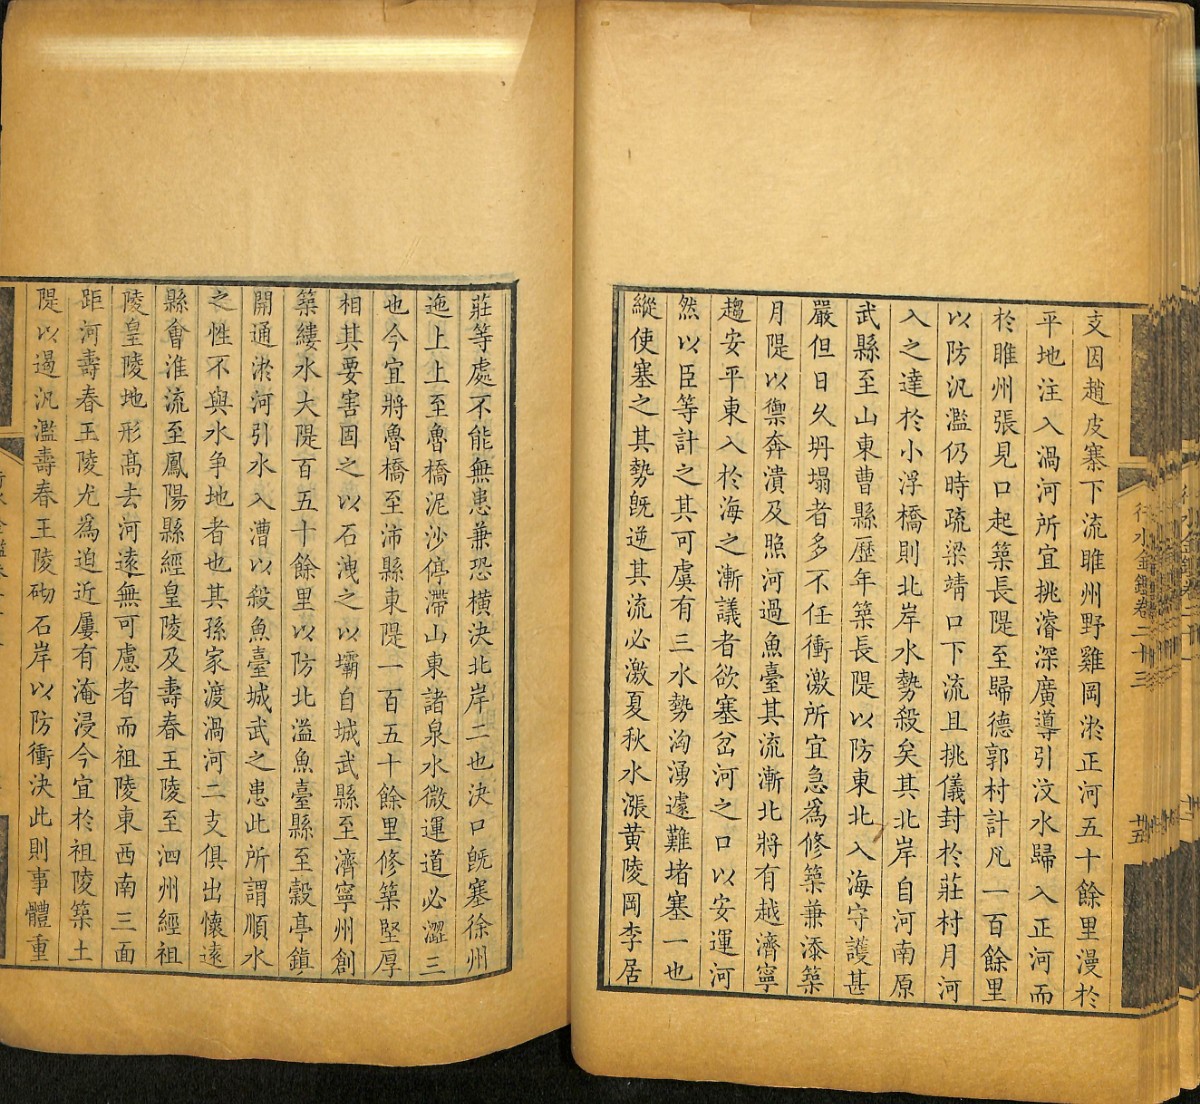 行水金鑑卷二十三
廿五
支因趙皮寨下流睢州野雞岡淤正河五十餘里漫於
平地注入渦河所宜挑濬深廣導引汶水歸入正河而
於睢州張見口起築長隄至歸德郭村計凡一百餘里
以防汎濫仍時疏梁靖口下流且挑儀封於莊村月河
入之達於小浮橋則北岸水勢殺矣其北岸自河南原
武縣至山東曹縣歷年築長隄以防東北入海守護甚
嚴但日久坍塌者多不任衝激所宜急為修築兼添築
月隄以禦奔潰及照河過魚臺其流漸北將有越濟寧
趨安平東入於海之漸議者欲塞岔河之口以安運河
然以臣等計之其可虞有三水勢洶湧遽難堵塞一也
縱使塞之其勢旣逆其流必激夏秋水漲黄陵岡李居
莊等處不能無患兼恐橫決北岸二也決口旣塞徐州
迤上上至魯橋泥沙停滯山東諸泉水微運道必澀三
也今宜將魯橋至沛縣東隄一百五十餘里修築堅厚
相其要害固之以石洩之以壩自城武縣至濟寧州創
築縷水大隄百五十餘里以防北溢魚臺縣至穀亭鎮
開通淤河引水入漕以殺魚臺城武之患此所謂順水
之性不與水争地者也其孫家渡渦河二支俱出懷遠
縣會淮流至鳳陽縣經皇陵及壽春王陵至泗州經祖
陵皇陵地形髙去河遠無可慮者而祖陵東西南三面
距河壽春王陵尤爲迫近屢有淹浸今宜於祖陵築土
隄以遏汎濫壽春王陵砌石岸以防衝決此則事體重